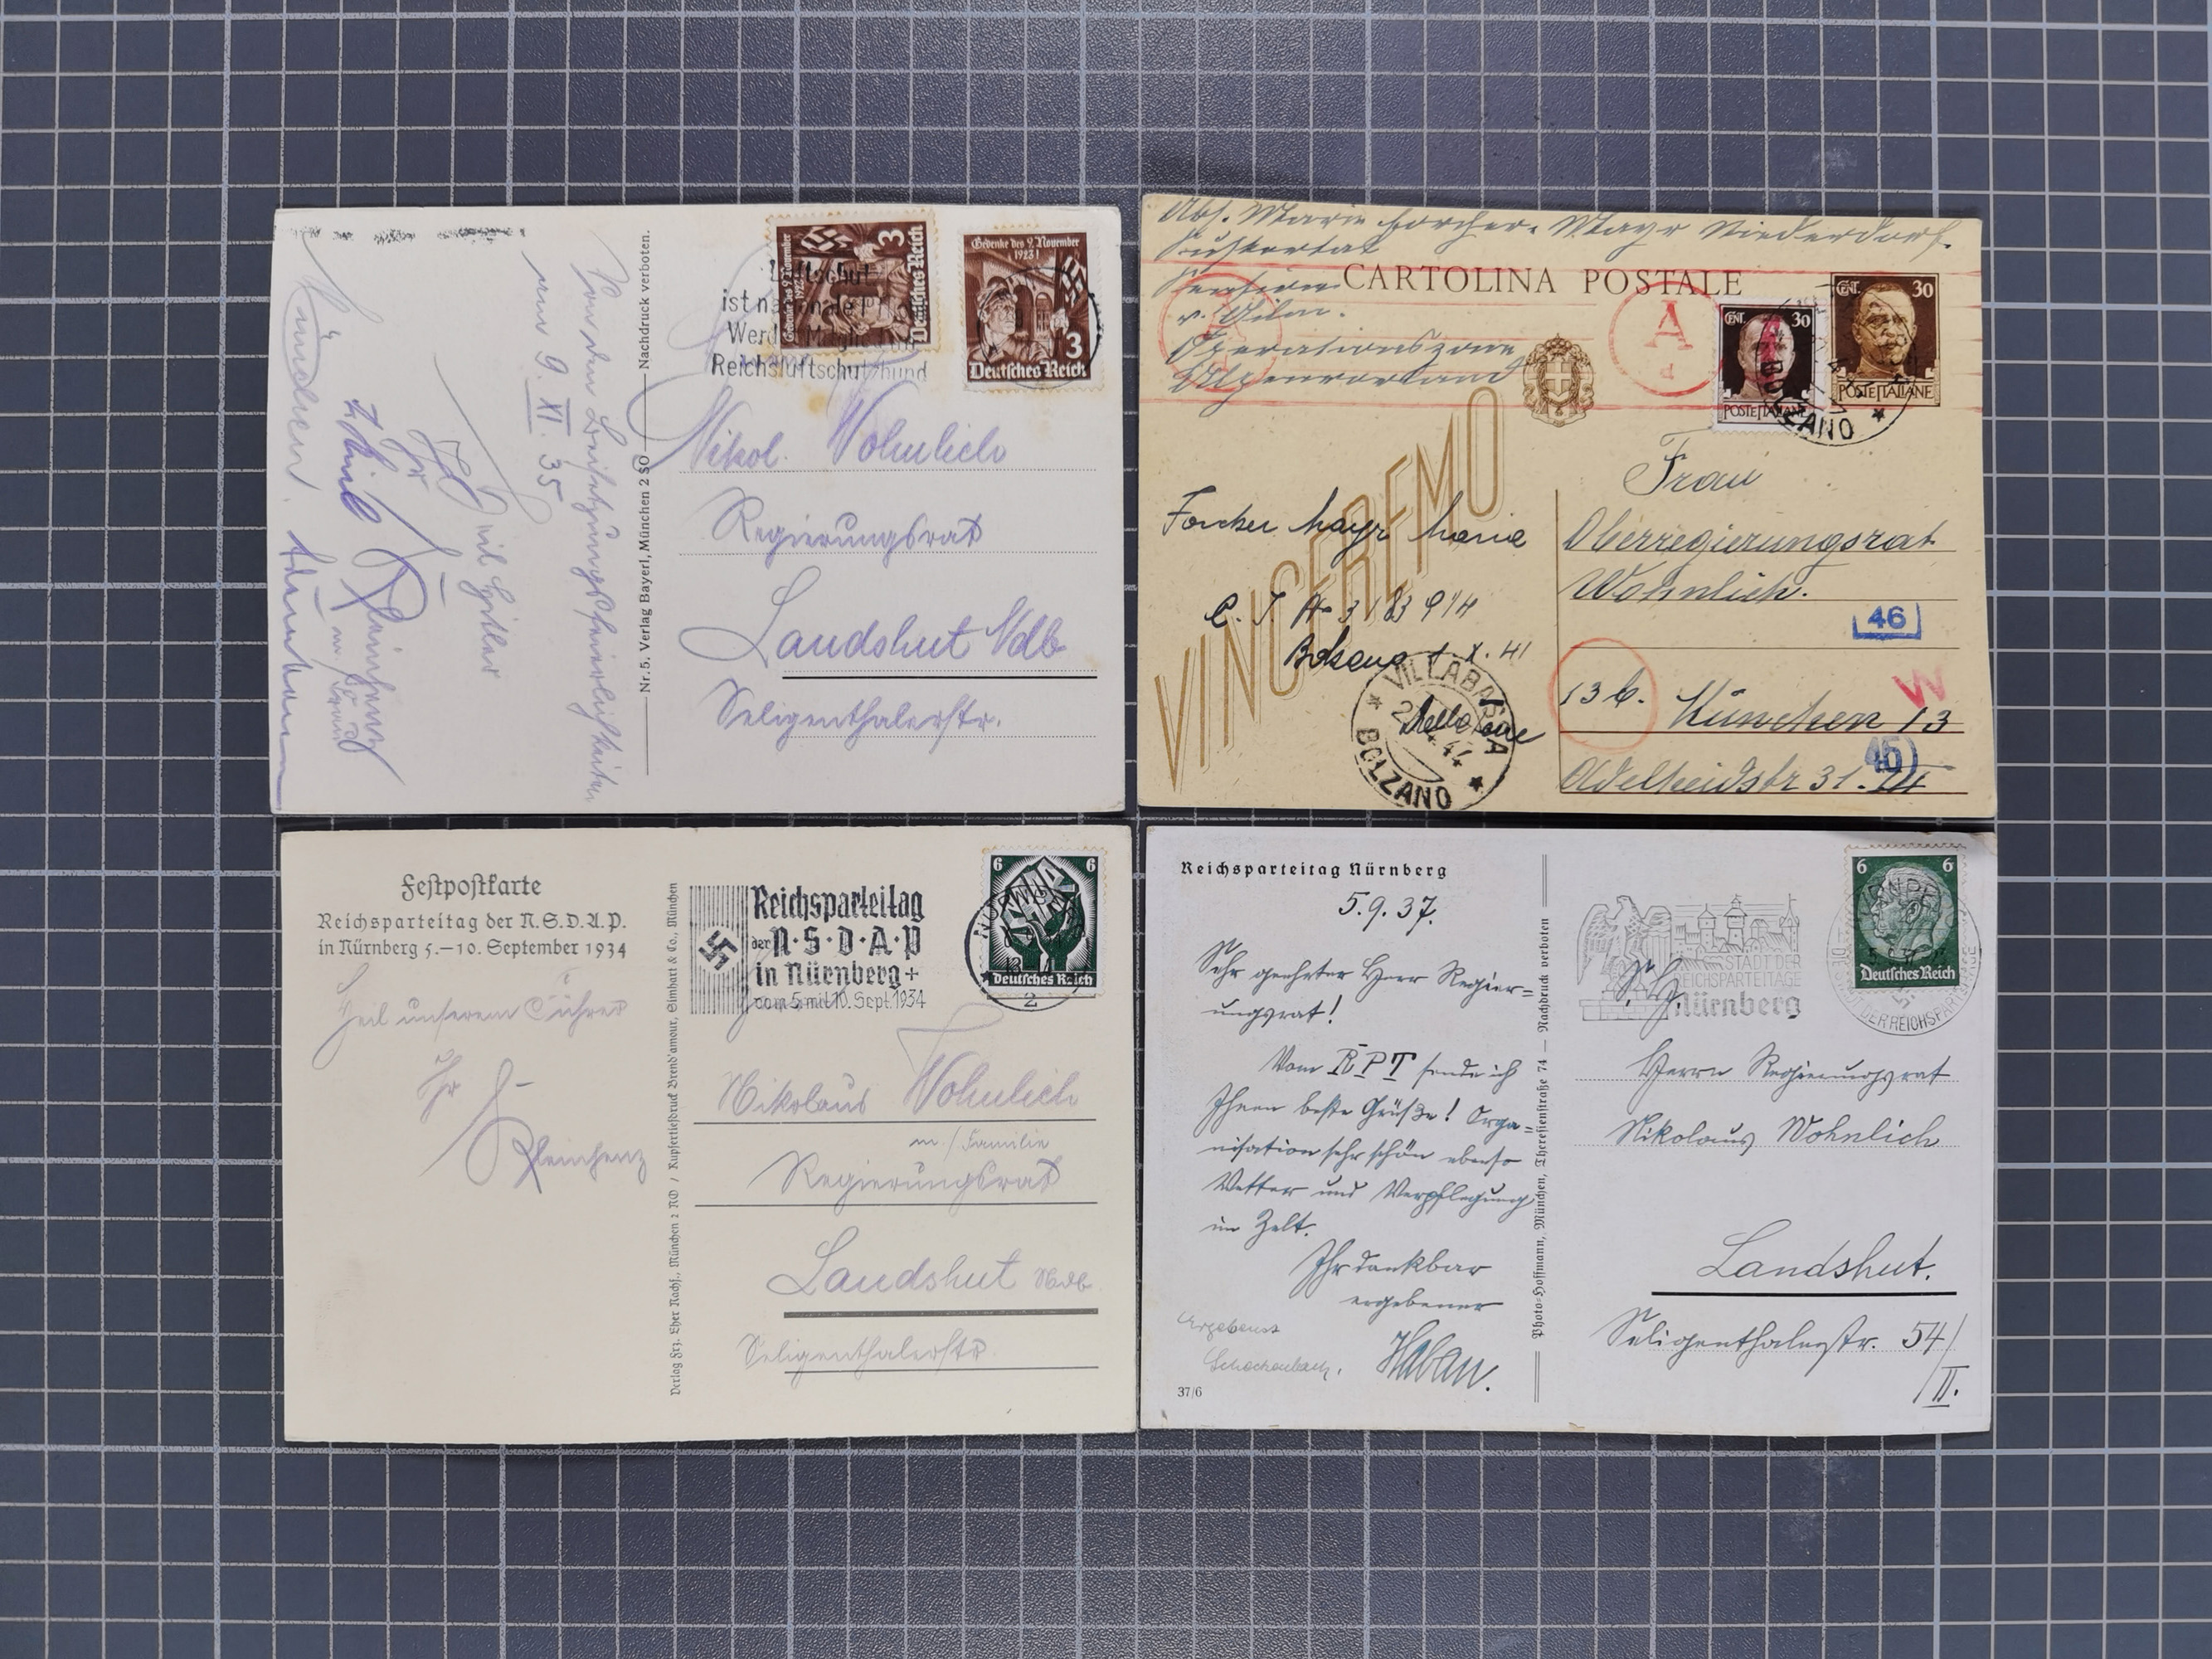 Nachdruck verboten.
Nr. 5. Verlag Bayerl, München 2 SO
Von den Beisetzungsfeierlichkeiten
am 9. XI. 35
Heil Hitler
Ihr
München
Gedenke des 9. November
1923!
3
Deutsches Reich
Gedenke des 9. November
1923!
3
Deutsches Reich
Luftschutz
ist nationale Pflicht
Werdet Mitglied im
Reichsluftschutzbund
Nikol. Wohnlich
Regierungsrat
Landshut Ndb
Seligenthalerstr.
Abs. Maria Forcher-Mayr Niederdorf.
Pustertal
Pension
Operationszone
Alpenvorland
CARTOLINA POSTALE
A
CENT. 30
POSTE ITALIANE
CENT. 30
POSTE ITALIANE
BOLZANO
VINCEREMO
Forcher Mayr Maria
C. I. No 3183914
VILLABASSA
BOLZANO
Frau
Oberregierungsrat
Wohnlich.
46
13b. München 13
W
Adelheidstr 31. III
Festpostkarte
Reichsparteitag der N.S.D.A.P.
in Nürnberg 5.–10. September 1934
Heil unserem Führer
Ihr
Kleinhenz
Verlag Frz. Eher Nachf., München 2 NO / Kupfertiefdruck Brend'amour, Simhart & Co., München
Reichsparteitag
der N·S·D·A·P
in Nürnberg
vom 5. mit 10. Sept. 1934
6 6
Deutsches Reich
NÜRNBERG
2
Nikolaus Wohnlich
m./Familie
Regierungsrat
Landshut Ndb
Seligenthalerstr.
Reichsparteitag Nürnberg
5.9.37.
Sehr geehrter Herr Regier=
ungsrat!
Vom RPT sende ich
Ihnen beste Grüße! Orga=
nisation sehr schön ebenso
Wetter und Verpflegung
im Zelt.
Ihr dankbar
ergebener
Haban.
Ergebenst
37/6
Photo-Hoffmann, München, Theresienstraße 74 — Nachdruck verboten
STADT DER
REICHSPARTEITAGE
Nürnberg
6 6
Deutsches Reich
NÜRNBERG
STADT DER REICHSPARTEITAGE
S. Hg.
Herrn Regierungsrat
Nikolaus Wohnlich
Landshut.
Seligenthalerstr. 54/
II.